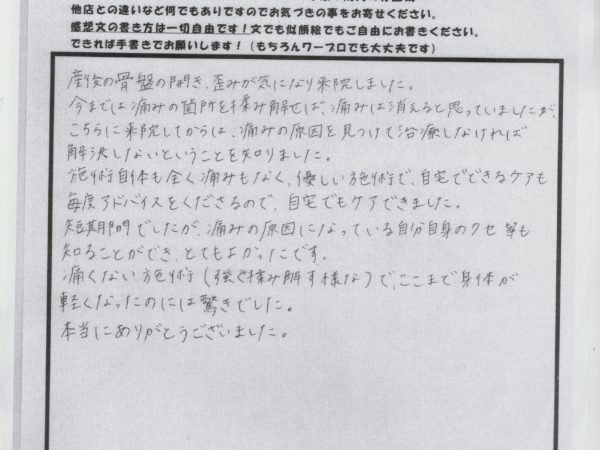 他店との違いなど何でもありですのでお気づきの事をお寄せください。
感想文の書き方は一切自由です！文でも似顔絵でもご自由にお書きください。
できれば手書きでお願いします！（もちろんワープロでも大丈夫です）
産後の骨盤の開き、歪みが気になり来院しました。
今までは痛みの箇所を揉み解せば、痛みは消えると思っていましたが、
こちらに来院してからは、痛みの原因を見つけて治療しなければ
解決しないということを知りました。
施術自体も全く痛みもなく、優しい施術で、自宅でできるケアも
毎度アドバイスをくださるので、自宅でもケアできました。
短期間でしたが、痛みの原因になっている自分自身のクセ等も
知ることができ、とてもよかったです。
痛くない施術（強く揉み解す様な）で、ここまで身体が
軽くなったのには驚きでした。
本当にありがとうございました。